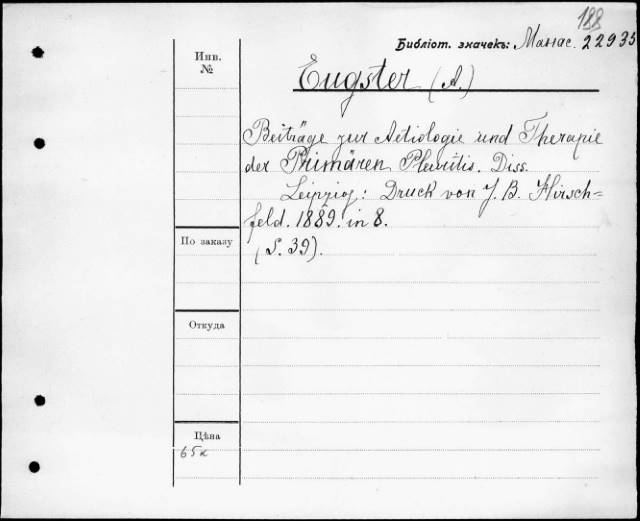 188
Библіот. значекъ: Манас. 22935
Инв.
№
Eugster (A.)
Beiträge zur Aetiologie und Therapie
der Primären Pleuritis. Diss.
Leipzig: Druck von J. B. Hirsch=
feld. 1889. in 8.
(S. 39).
По заказу
Откуда
Цѣна
65к